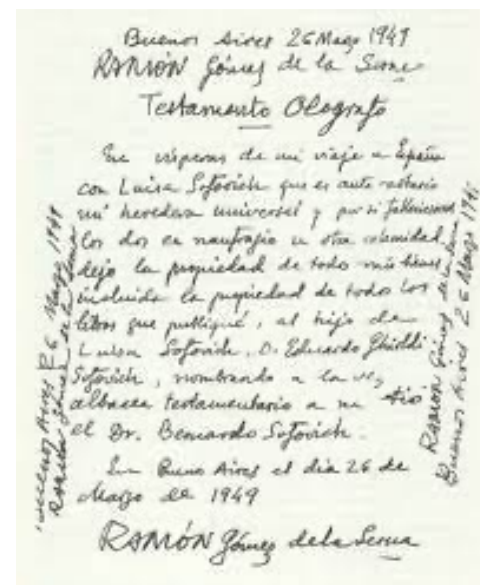 Buenos Aires 26 Marzo 1949
RAMÓN Gómez de la Serna
Testamento Ológrafo
En vísperas de mi viaje a España
con Luisa Sofovich que es ante notario
mi heredera universal y por si falleciésemos
los dos en naufragio u otra calamidad
dejo la propiedad de todos mis bienes
incluida la propiedad de todos los
libros que publiqué, al hijo de
Luisa Sofovich, D. Eduardo Ghioldi
Sofovich, nombrando a la vez
albacea testamentario a su tío
el Dr. Bernardo Sofovich.
En Buenos Aires el día 26 de
Marzo de 1949
RAMÓN Gómez de la Serna
Buenos Aires 26 Marzo 1949
RAMÓN Gómez de la Serna
RAMÓN Gómez de la Serna
Buenos Aires 26 Marzo 1949